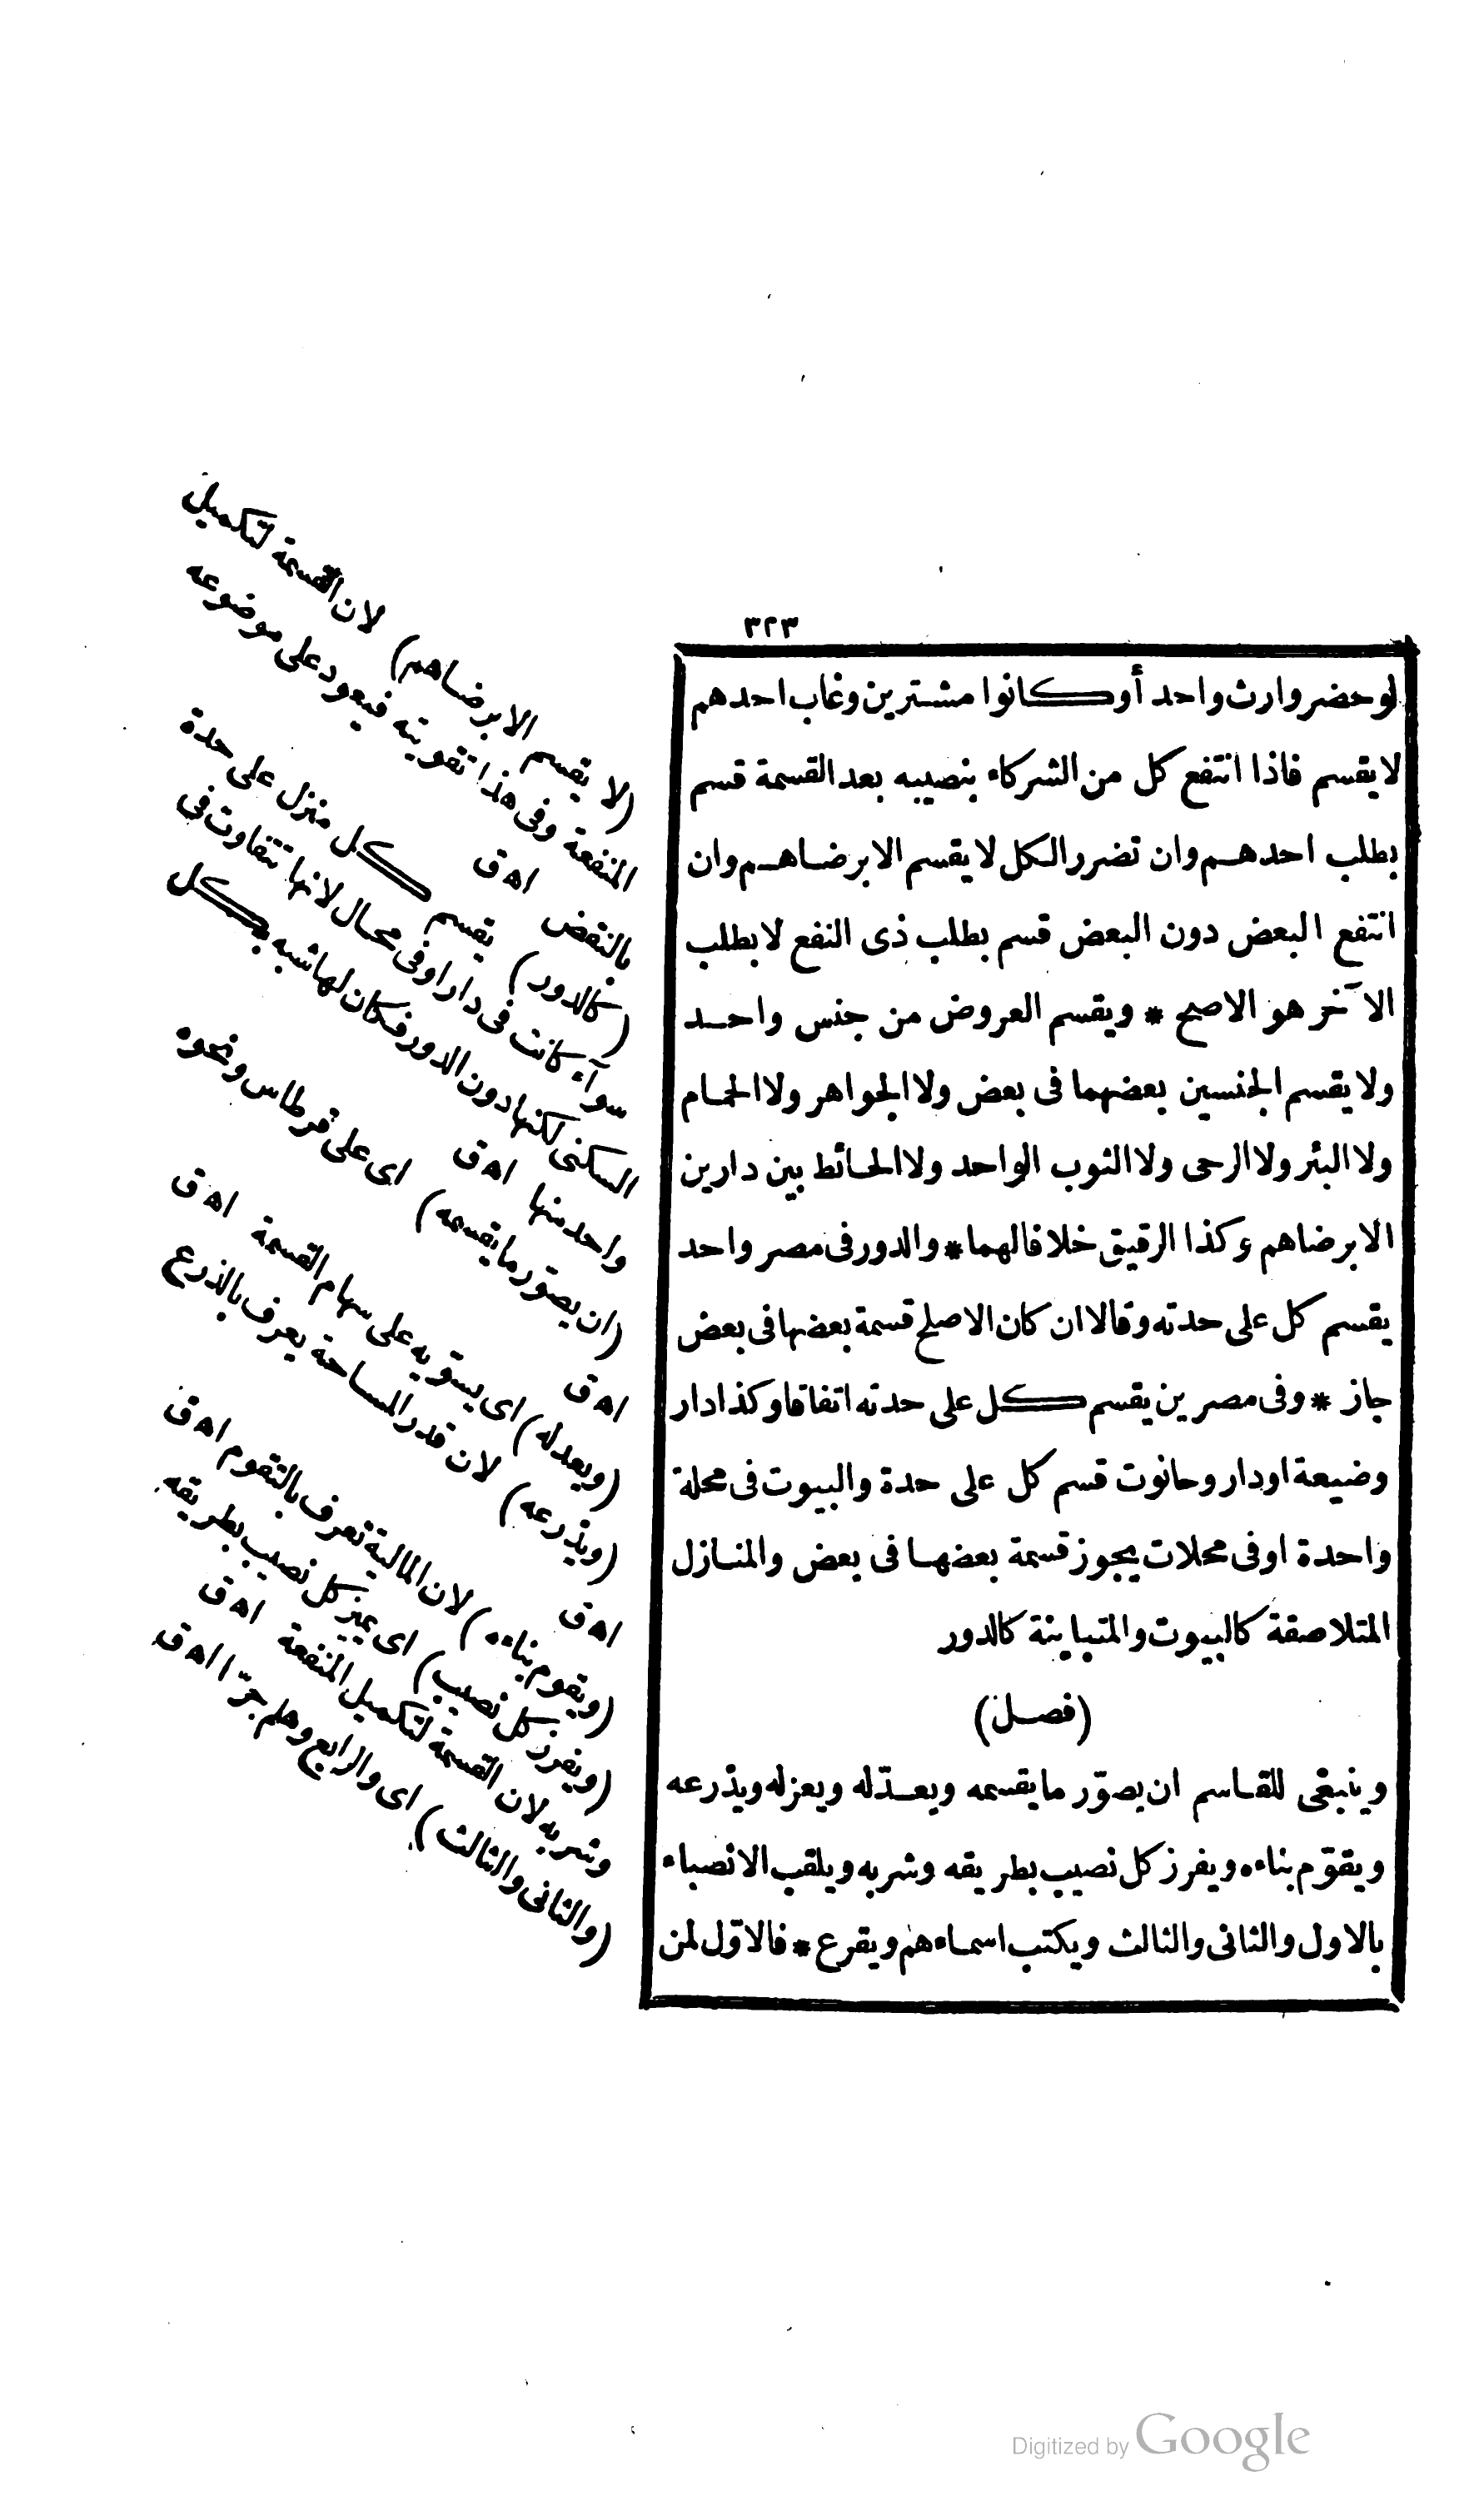 ٣٢٣
لو حضر وارث واحد أو كانوا مشترين وغاب احدهم
لا يقسم فاذا انتفع كل من الشركاء بنصيبه بعد القسمة قسم
بطلب احدهم وان تضرر الكل لا يقسم الا برضاهم وان
انتفع البعض دون البعض قسم بطلب ذى النفع لا بطلب
الآخر هو الاصح * ويقسم العروض من جنس واحد
ولا يقسم الجنسين بعضهما فى بعض ولا الجواهر ولا الحمام
ولا البئر ولا الرحى ولا الثوب الواحد ولا الحائط بين دارين
الا برضاهم وكذا الرقيق خلافا لهما * والدور فى مصر واحد
يقسم كل على حدته وقالا ان كان الاصلح قسمة بعضها فى بعض
جاز * وفى مصرين يقسم كل على حدته اتفاقا وكذا دار
وضيعة او دار وحانوت قسم كل على حدة والبيوت فى محلة
واحدة او فى محلات يجوز قسمة بعضها فى بعض والمنازل
المتلاصقة كالبيوت والمتباينة كالدور
(فصل)
وينبغى للقاسم ان يصوّر ما يقسمه ويعدّله ويعزله ويذرعه
ويقوّم بناءه ويفرز كل نصيب بطريقه وشربه ويلقب الانصباء
بالاول والثانى والثالث ويكتب اسماءهم ويقرع * فالاوّل لمن
(لا يقسم الا برضاهم) لان القسمة لتكميل
المنفعة وفى هذا تفويته فيعود على موضوعه
بالنقض اه ق
(كالدور) يقسم كل منزل على حدة
سوآء كانت فى دار او فى محال لانها تتفاوت فى
السكنى لكنها دون الدور فكان لها شبه بكل
واحد منها اه ق
(ان يصوّر ما يقسمه) اى على قرطاس ونحوه
اه ق
(ويعدله) اى يسوّيه على سهام القسمة اه ق
(ويذرعه) لان قدر المساحة يعرف بالذرع
اه ق
(ويقوم بناءه) لان المالية تعرف بالتقوم اه ق
(ويفرز كل نصيب) اى يميز كل نصيب بطريقه
وشربه لان القسمة لتكميل المنفعة اه ق
(والثانى والثالث) اى والرابع وهلم جرّا اه ق
Digitized by Google